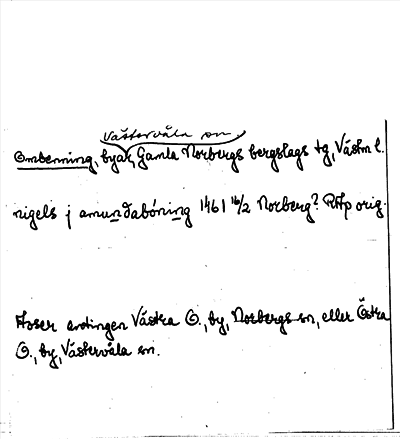 Västervåla sn,
Ombenning, byar, Gamla Norbergs bergslags tg, Västm l.
nigels j amundabóning 1461 16/2 Norberg? RAp orig.
Avser antingen Västra O., by, Norbergs sn, eller Östra
O., by, Västervåla sn.